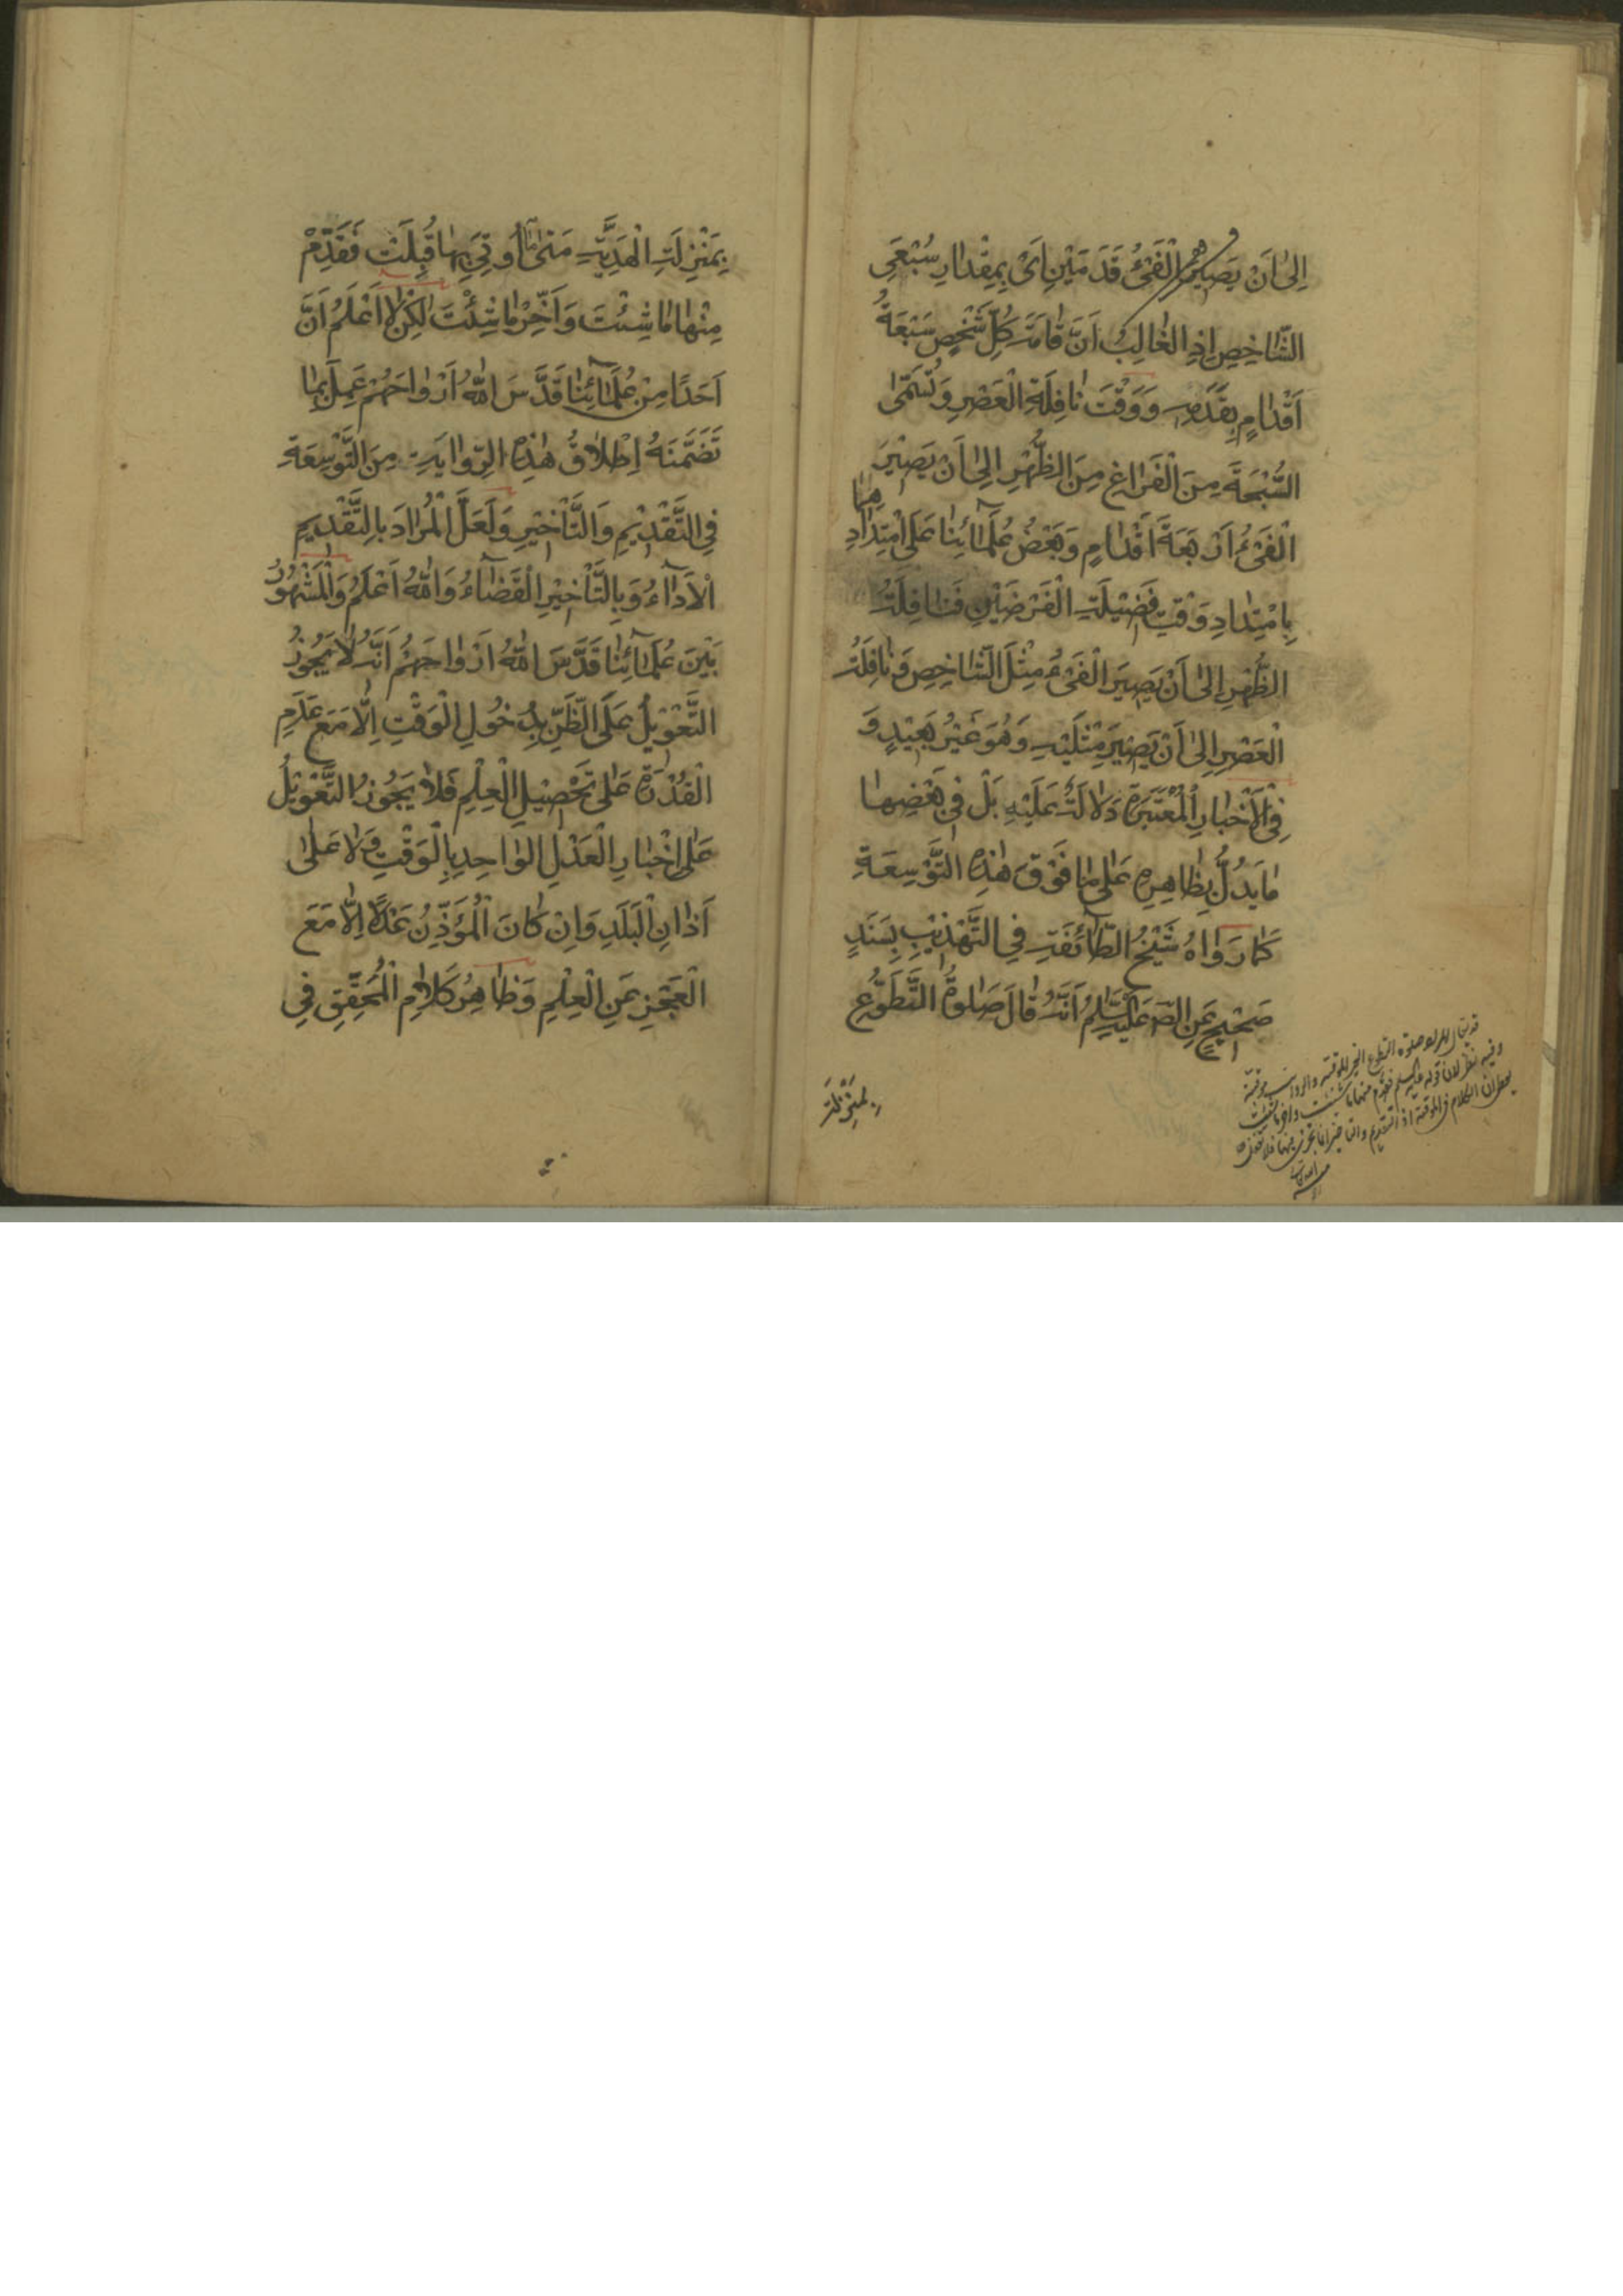 اِلىٰ اَنْ يَصِيرَ الْفَيْءُ قَدَمَيْنِ اَيْ بِمِقْدَارِ سُبْعَيِ
الشَّاخِصِ اِذِ الْغَالِبُ اَنَّ قَامَةَ كُلِّ شَخْصٍ سَبْعَةُ
اَقْدَامٍ بِقَدَمِهِ وَوَقْتَ نَافِلَةِ الْعَصْرِ وَتُسَمّٰى
السُّبْحَةَ مِنَ الْفَرَاغِ مِنَ الظُّهْرِ اِلىٰ اَنْ يَصِيْرَ
الْفَيْءُ اَرْبَعَةَ اَقْدَامٍ وَبَعْضُ عُلَمَائِنَا عَلَى امْتِدَادِهِمَا
بِامْتِدَادِ وَقْتِ فَضِيْلَةِ الْفَرْضَيْنِ فَنَافِلَةُ
الظُّهْرِ اِلىٰ اَنْ يَصِيْرَ الْفَيْءُ مِثْلَ الشَّاخِصِ وَنَافِلَةُ
الْعَصْرِ اِلىٰ اَنْ يَصِيْرَ مِثْلَيْهِ وَهُوَ غَيْرُ بَعِيْدٍ وَ
فِي الْاَخْبَارِ الْمُعْتَبَرَةِ دَلَالَةٌ عَلَيْهِ بَلْ فِي بَعْضِهَا
مَا يَدُلُّ بِظَاهِرِهِ عَلىٰ مَا فَوْقَ هٰذِهِ التَّوْسِعَةِ
كَمَا رَوَاهُ شَيْخُ الطَّائِفَةِ فِي التَّهْذِيْبِ بِسَنَدٍ
صَحِيْحٍ عَنِ الصَّ عَلَيْهِ السَّلَمُ اَنَّهُ قَالَ صَلٰوةُ التَّطَوُّعِ
بِمَنْزِلَةِ
وفيه نظر لان قوله عليه السلم فقدم منها ما شئت واخر ما شئت
بِمَنْزِلَةِ الْهَدِيَّةِ مَتٰى مَا اُوتِيَ بِهَا قُبِلَتْ فَقَدِّمْ
مِنْهَا مَا شِئْتَ وَاَخِّرْ مَا شِئْتَ لٰكِنْ لَا اَعْلَمُ اَنَّ
اَحَدًا مِنْ عُلَمَائِنَا قَدَّسَ اللّٰهُ اَرْوَاحَهُمْ عَمِلَ بِمَا
تَضَمَّنَهُ اِطْلَاقُ هٰذِهِ الرِّوَايَةِ مِنَ التَّوْسِعَةِ
فِي التَّقْدِيْمِ وَالتَّأْخِيْرِ وَلَعَلَّ الْمُرَادَ بِالتَّقْدِيمِ
الْاَدَاءُ وَبِالتَّأْخِيْرِ الْقَضَاءُ وَاللّٰهُ اَعْلَمُ وَالْمَشْهُوْرُ
بَيْنَ عُلَمَائِنَا قَدَّسَ اللّٰهُ اَرْوَاحَهُمْ اَنَّهُ لَا يَجُوْزُ
التَّعْوِيْلُ عَلَى الظَّنِّ بِدُخُولِ الْوَقْتِ اِلَّا مَعَ عَدَمِ
الْقُدْرَةِ عَلٰى تَحْصِيْلِ الْعِلْمِ فَلَا يَجُوزُ التَّعْوِيْلُ
عَلٰى اِخْبَارِ الْعَدْلِ الْوَاحِدِ بِالْوَقْتِ وَلَا عَلٰى
اَذَانِ الْبَلَدِ وَاِنْ كَانَ الْمُؤَذِّنُ عَدْلًا اِلَّا مَعَ
الْعَجْزِ عَنِ الْعِلْمِ وَظَاهِرُ كَلَامِ الْمُحَقِّقِ فِي